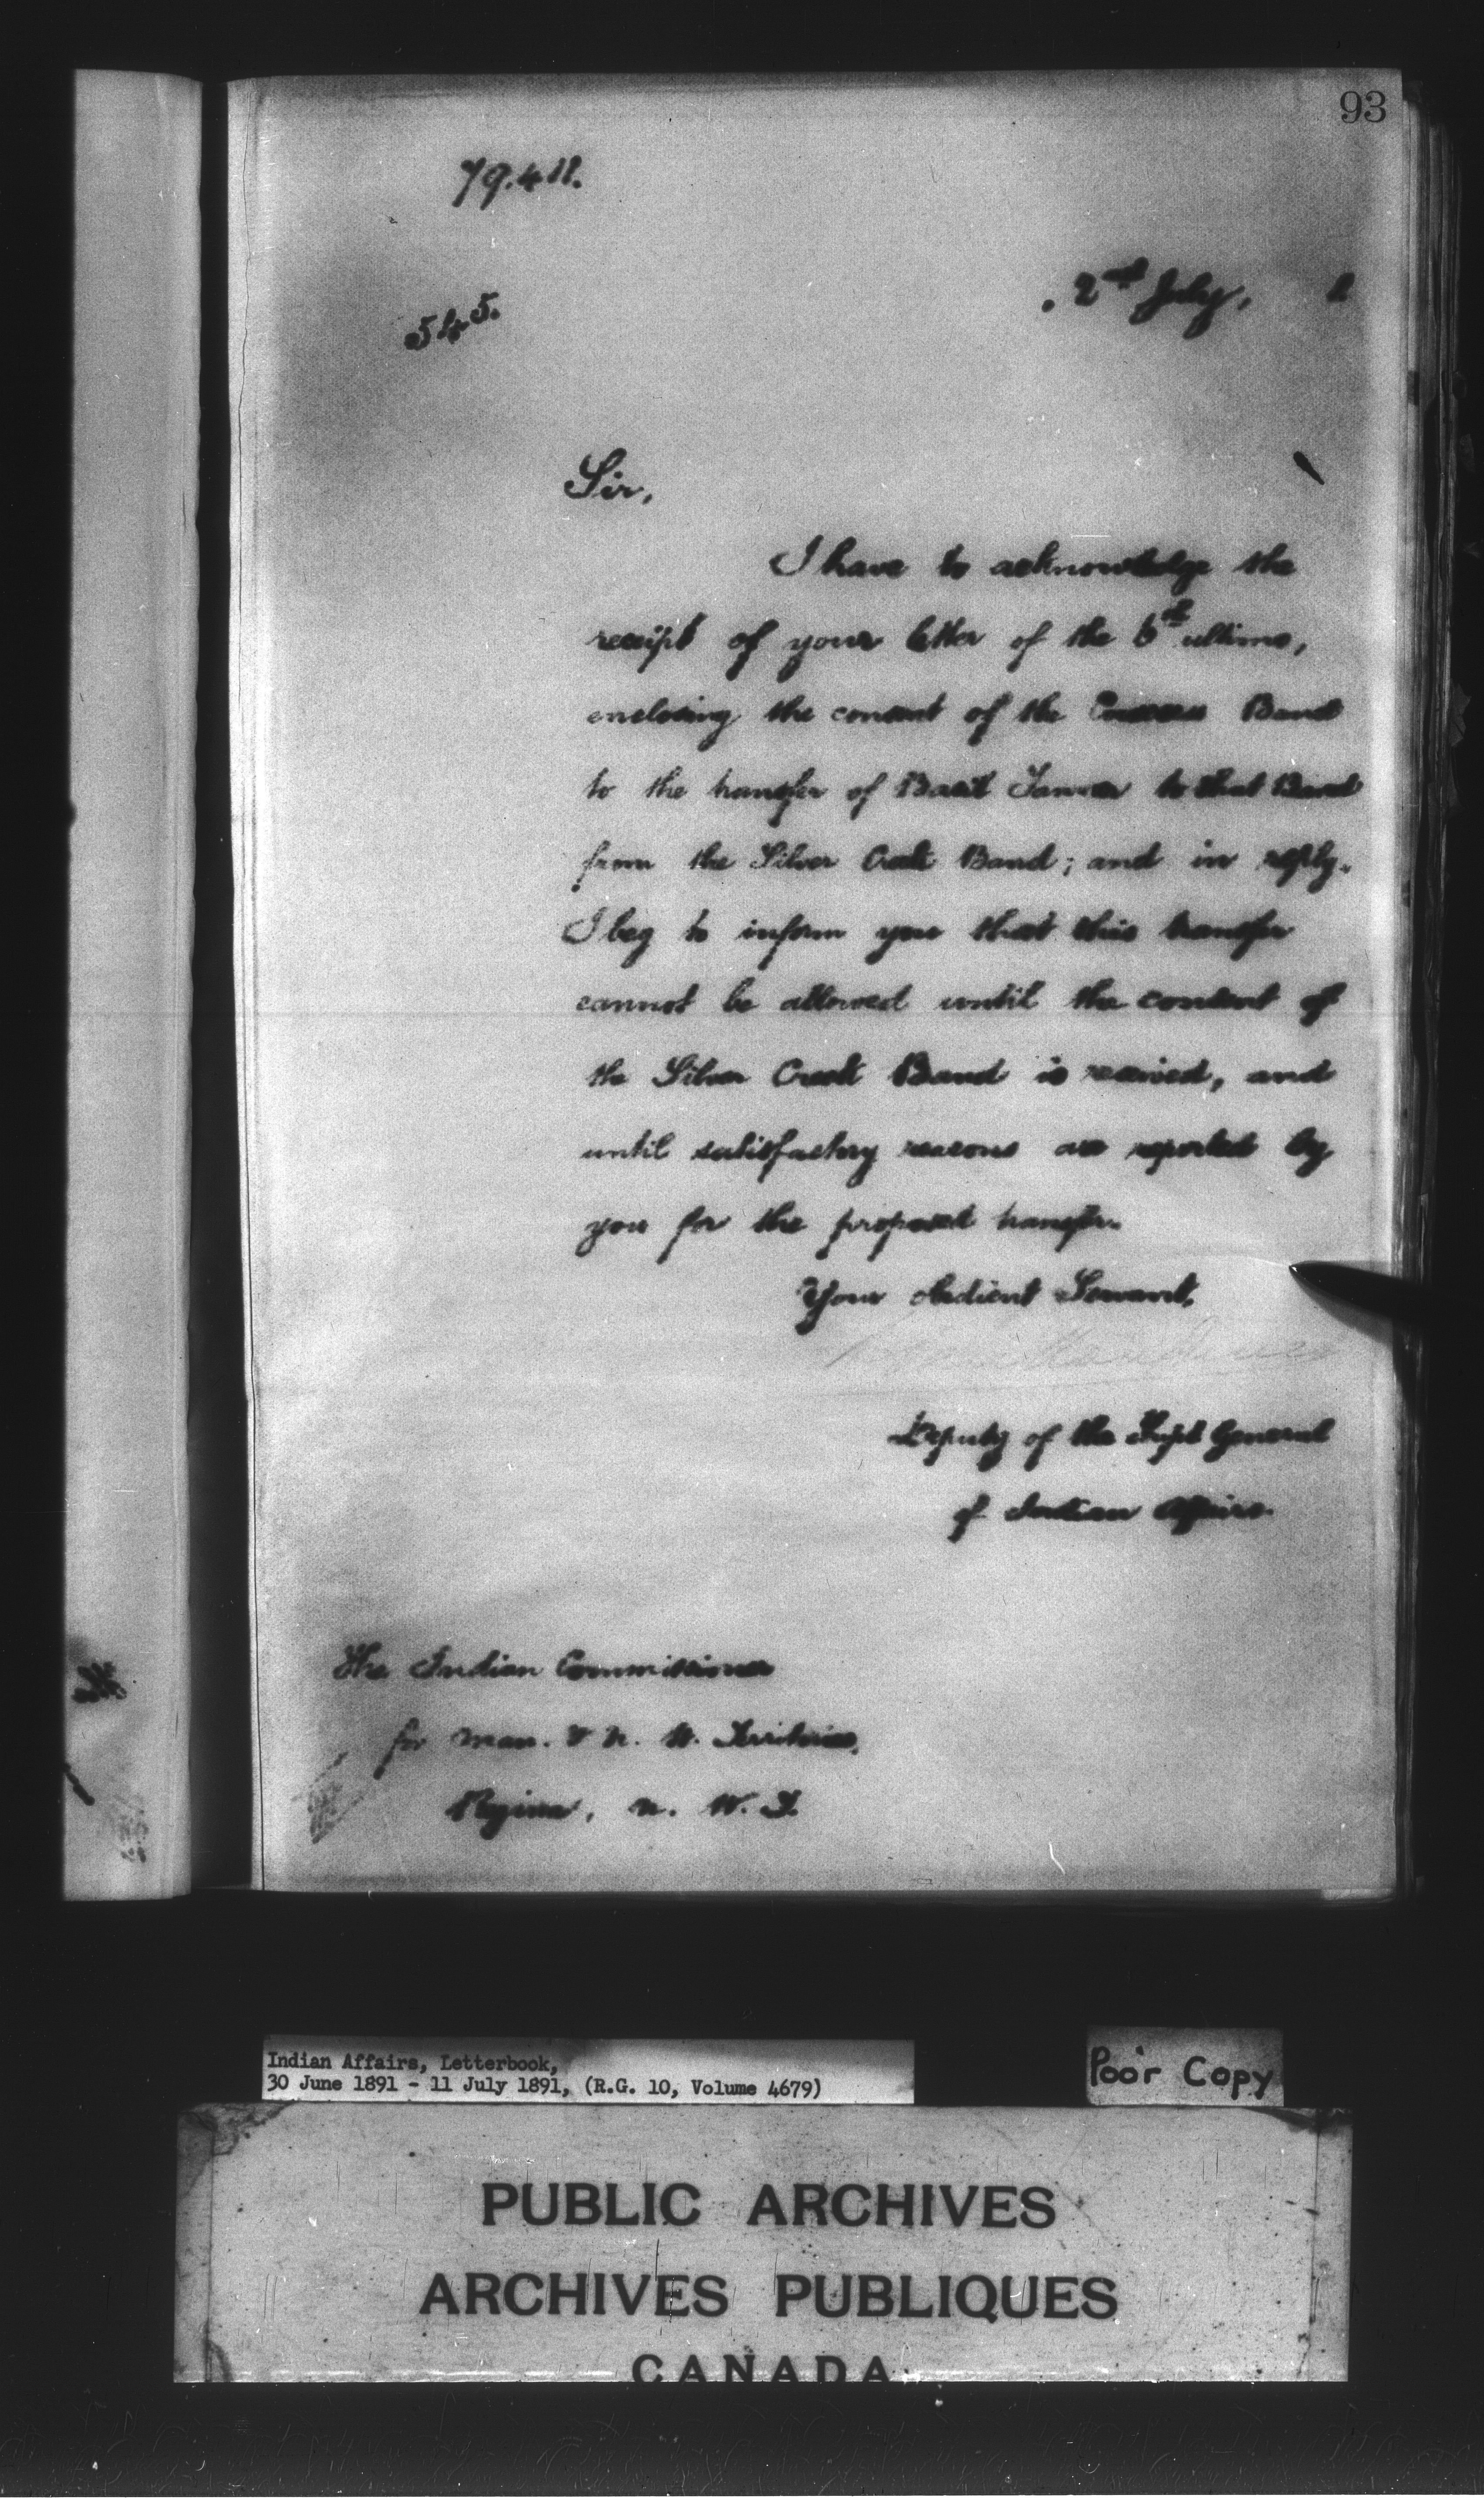 93
79.411.
545.
. 2nd July, 1
Sir,
I have to acknowledge the
receipt of your letter of the 6th ultimo,
enclosing the consent of the Band
to the transfer of Basil Tanner to that Band
from the Silver Creek Band; and in reply.
I beg to inform you that this transfer
cannot be allowed until the consent of
the Silver Creek Band is received, and
until satisfactory reasons are reported by
you for the proposed transfer.
Your obedient Servant,
Deputy of the Supt General
of Indian Affairs.
The Indian Commissioner
for Man. & N. W. Territories,
Regina, N. W. T.
Indian Affairs, Letterbook,
30 June 1891 - 11 July 1891, (R.G. 10, Volume 4679)
Poor Copy
PUBLIC ARCHIVES
ARCHIVES PUBLIQUES
CANADA